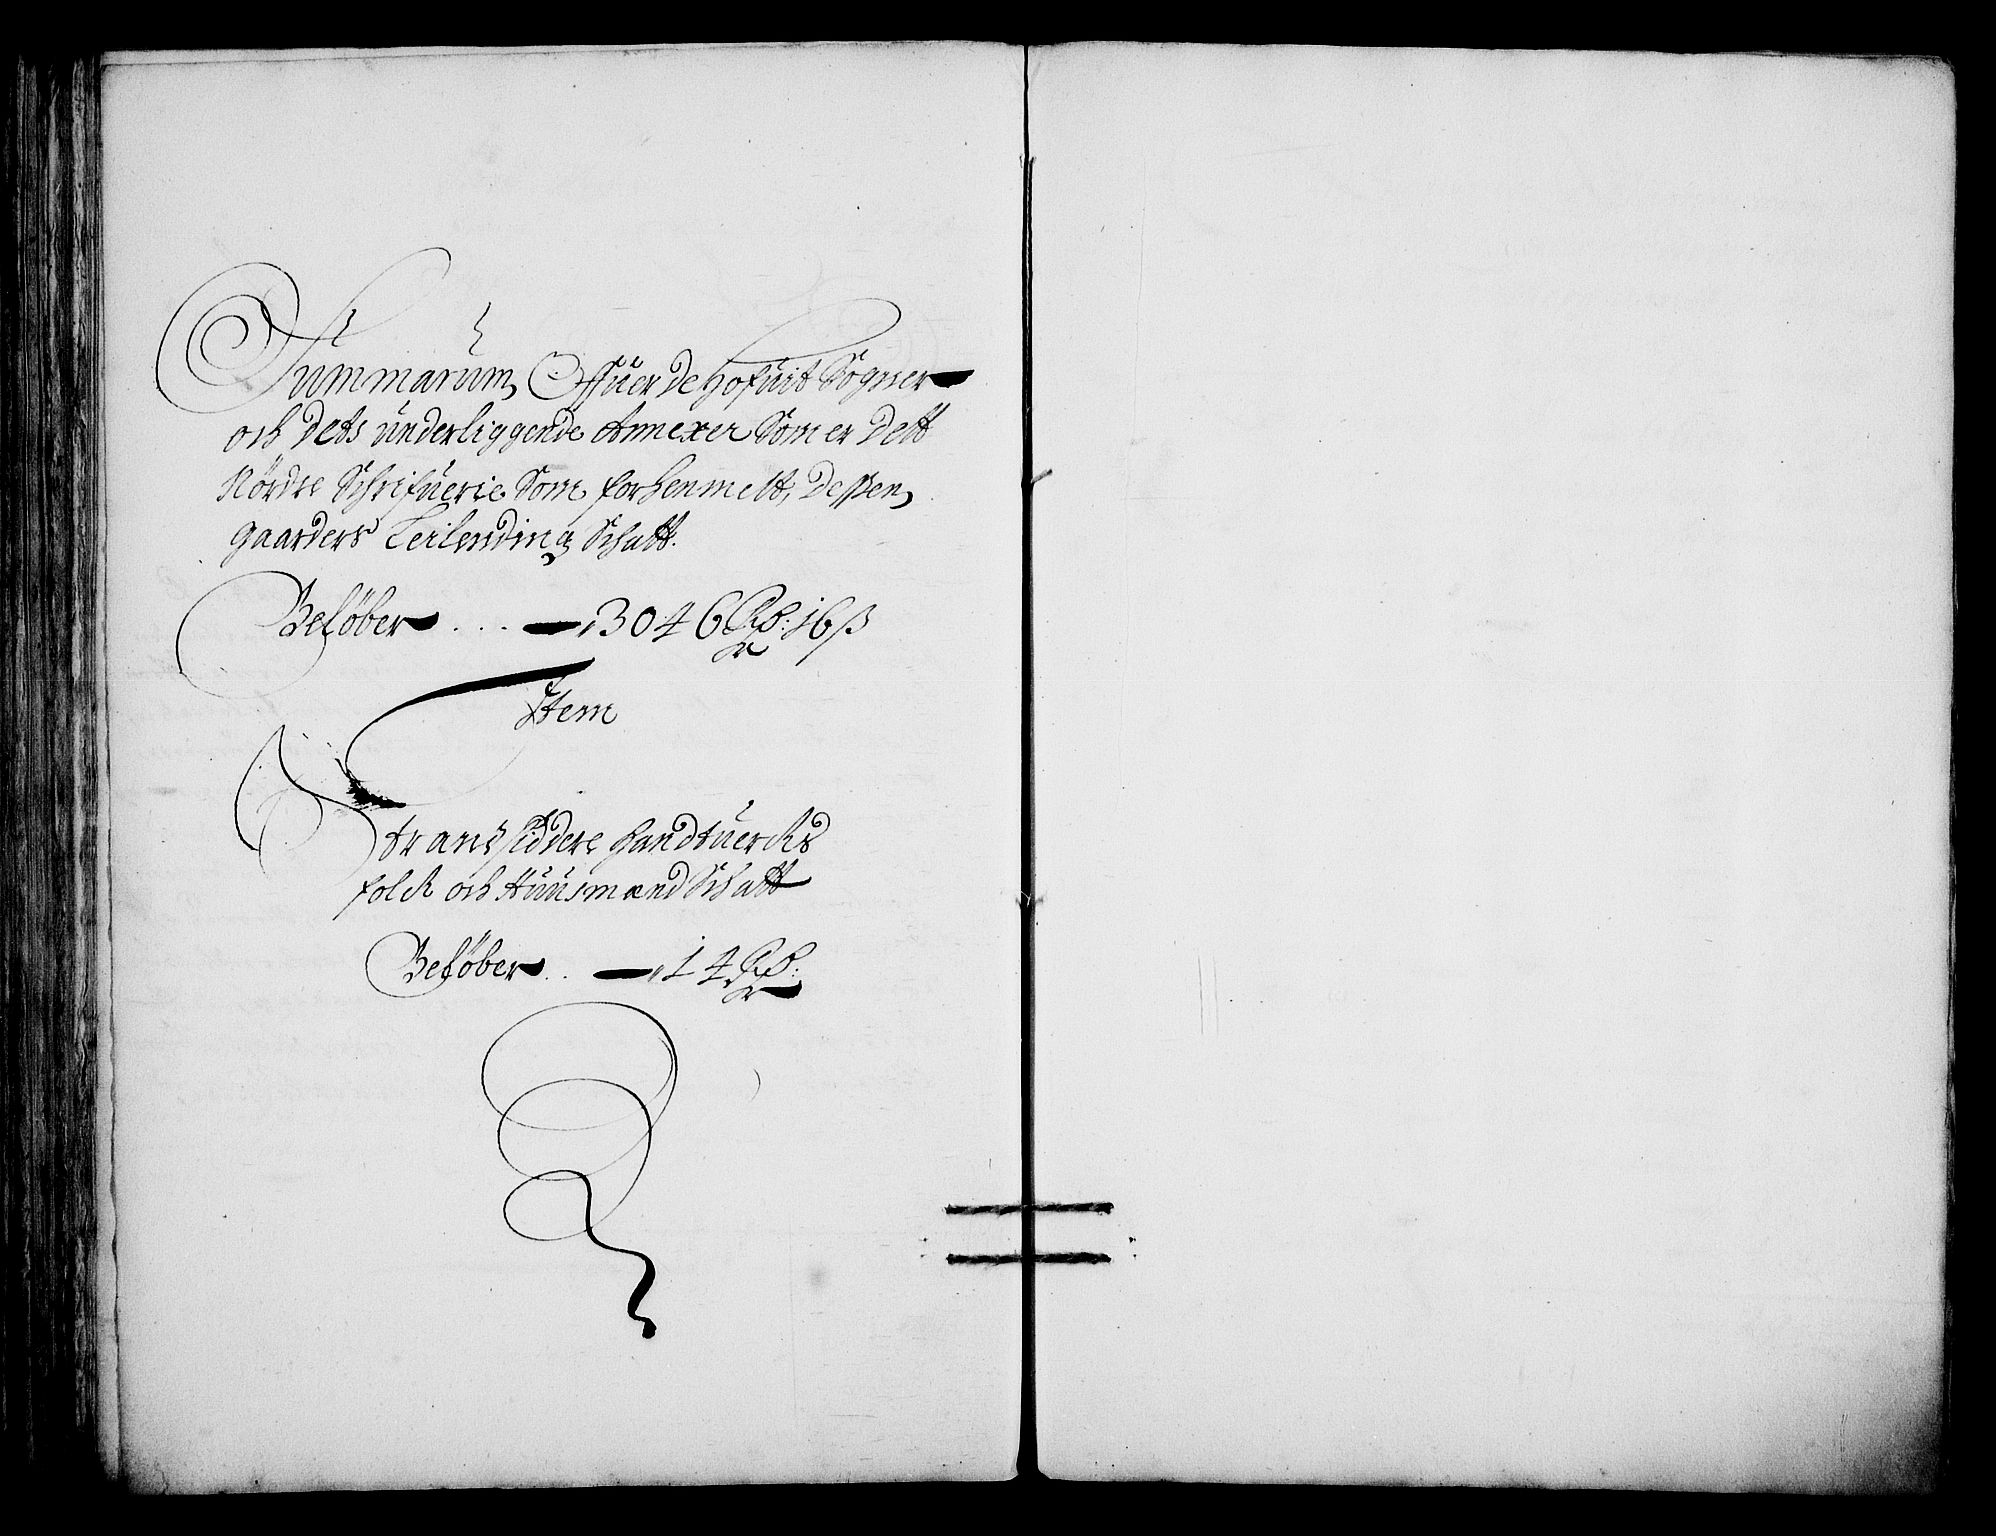 Summarum, Offuer de Hofuit Sogner
och dets underliggende Annexer Som er dett
Nördre Schrifuerie Som forhenmelt, dessen
gaarders Leilending Schatt.
Belöber . . . 3046 Rdr: 16 ß
Item
Strandsiddere handtuercks
folck och Huusmænd Schatt
Belöber . . 14 Rdr: